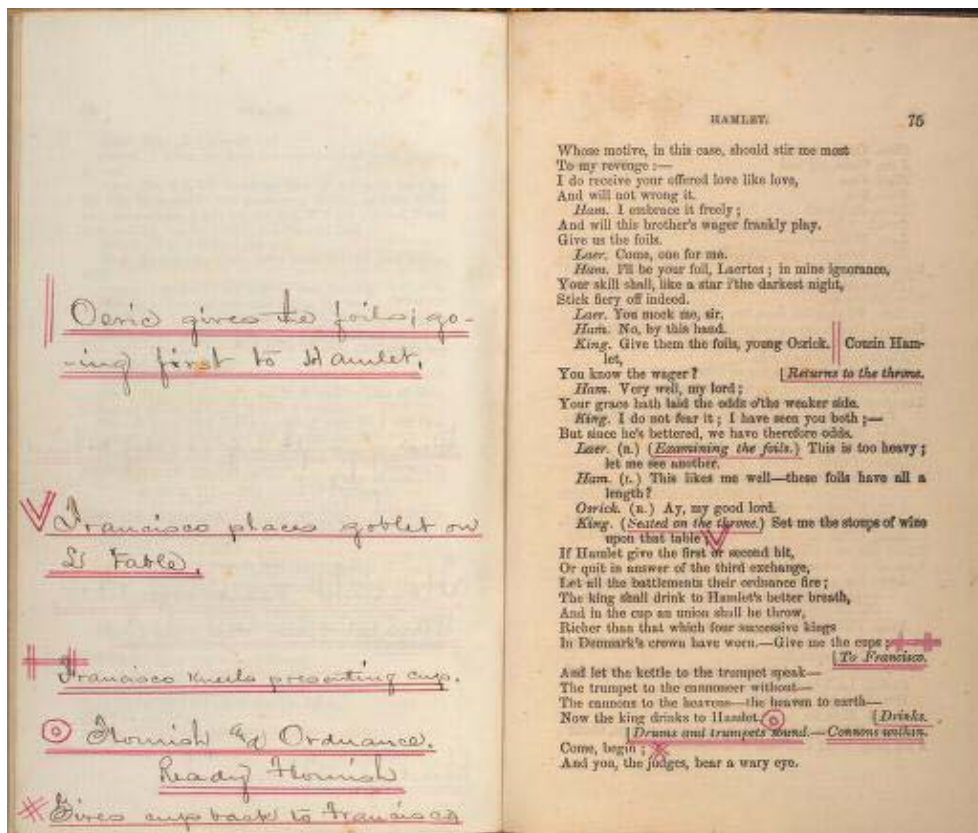 Osric gives the foils; go-
-ing first to Hamlet.
Francisco places goblet on
Table.
Francisco kneels presenting cup.
Flourish and Ordnance.
Ready Flourish
Gives cup back to Francisco
HAMLET. 75
Whose motive, in this case, should stir me most
To my revenge :—
I do receive your offered love like love,
And will not wrong it.
Ham. I embrace it freely ;
And will this brother's wager frankly play.
Give us the foils.
Laer. Come, one for me.
Ham. I'll be your foil, Laertes ; in mine ignorance,
Your skill shall, like a star i'the darkest night,
Stick fiery off indeed.
Laer. You mock me, sir.
Ham. No, by this hand.
King. Give them the foils, young Osrick. Cousin Ham-
let,
You know the wager ? [Returns to the throne.
Ham. Very well, my lord ;
Your grace hath laid the odds o'the weaker side.
King. I do not fear it ; I have seen you both ;—
But since he's bettered, we have therefore odds.
Laer. (R.) (Examining the foils.) This is too heavy ;
let me see another.
Ham. (L.) This likes me well—these foils have all a
length ?
Osrick. (R.) Ay, my good lord.
King. (Seated on the throne.) Set me the stoups of wine
upon that table
If Hamlet give the first or second hit,
Or quit in answer of the third exchange,
Let all the battlements their ordnance fire ;
The king shall drink to Hamlet's better breath,
And in the cup an union shall he throw,
Richer than that which four successive kings
In Denmark's crown have worn.—Give me the cups ;
[To Francisco.
And let the kettle to the trumpet speak—
The trumpet to the cannoneer without—
The cannons to the heavens—the heaven to earth—
Now the king drinks to Hamlet. [Drinks.
[Drums and trumpets sound.—Cannons within.
Come, begin ;
And you, the judges, bear a wary eye.